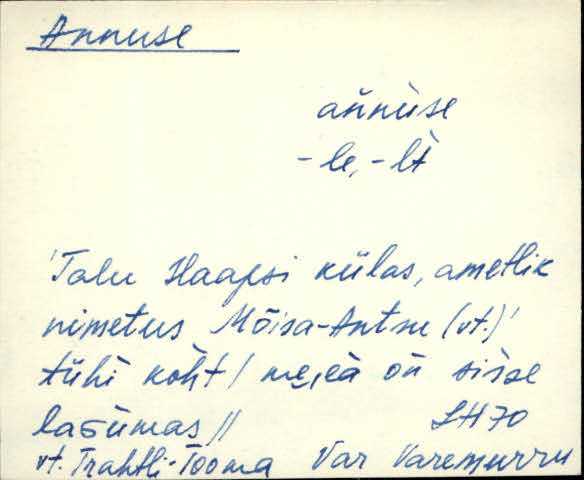 Annuse
ańnüse
-le, -lt
'Talu Haapsi külas, ametlik
nimetus Mõisa-Antsu (vt.)'
tühi koht / on sisse
LH 70
vt. Trahtli-Tooma Var Varemurru